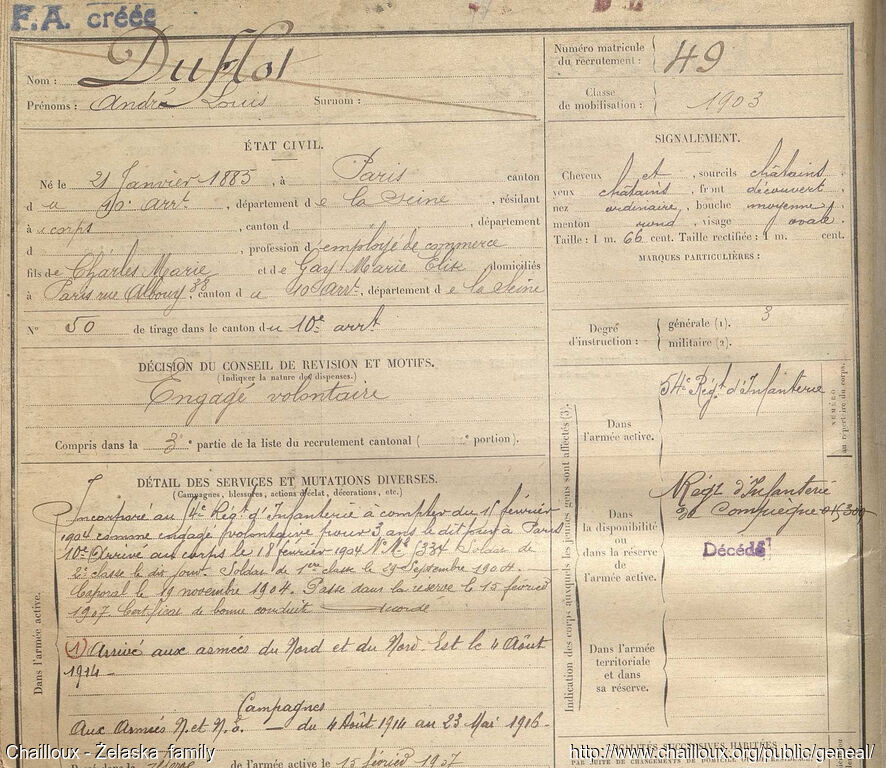 F.A. créée
Duflot
Nom :
Prénoms : André Louis Surnom :
ÉTAT CIVIL.
Né le 21 Janvier 1885, à Paris canton
du 10e arrt, département de la Seine, résidant
à corps, canton d , département
d , profession d'employé de commerce
fils de Charles Marie et de Gay Marie Elise domiciliés
à Paris rue Albouy 28, canton du 10 arrt, département de la Seine
N° 50 de tirage dans le canton du 10e arrt
DÉCISION DU CONSEIL DE REVISION ET MOTIFS.
(Indiquer la nature des dispenses.)
Engagé volontaire
Compris dans la 3e partie de la liste du recrutement cantonal ( e portion).
DÉTAIL DES SERVICES ET MUTATIONS DIVERSES.
(Campagnes, blessures, actions d'éclat, décorations, etc.)
Incorporé au 54e Régt d'Infanterie à compter du 15 février
1904 comme engagé volontaire pour 3 ans le dit jour à Paris
10e Arrivé au corps le 18 février 1904 Soldat de
2e classe le dit jour. Soldat de 1ère classe le 29 Septembre 1904.
Caporal le 19 novembre 1904. Passé dans la réserve le 15 février
1907. Certificat de bonne conduite accordé
(1) Arrivé aux armées du Nord et du Nord-Est le 4 Août
1914
Campagnes
Aux Armées N. et N.E. — du 4 Août 1914 au 23 Mai 1916
réserve de l'armée active le 15 février 1907
Dans l'armée active.
Numéro matricule
du recrutement : 49
Classe
de mobilisation : 1903
SIGNALEMENT.
Cheveux et , sourcils châtains
yeux châtains, front découvert
nez ordinaire, bouche moyenne
menton rond, visage ovale
Taille : 1 m. 66 cent. Taille rectifiée : 1 m. cent.
MARQUES PARTICULIÈRES :
Degré
d'instruction :
générale (1). 3
militaire (2).
Indication des corps auxquels les jeunes gens sont affectés (3).
NUMÉRO
au répertoire du corps.
54e Régt d'Infanterie
Dans
l'armée active.
Régt d'Infanterie
de Compiègne
Dans
la disponibilité
ou dans la réserve
de
l'armée active.
Décédé
Dans l'armée
territoriale
et dans
sa réserve.
LOCALITÉS SUCCESSIVES HABITÉES
PAR SUITE DE CHANGEMENTS DE DOMICILE OU DE RÉSIDENCE
Chailloux - Żelaska family
http://www.chailloux.org/public/geneal/